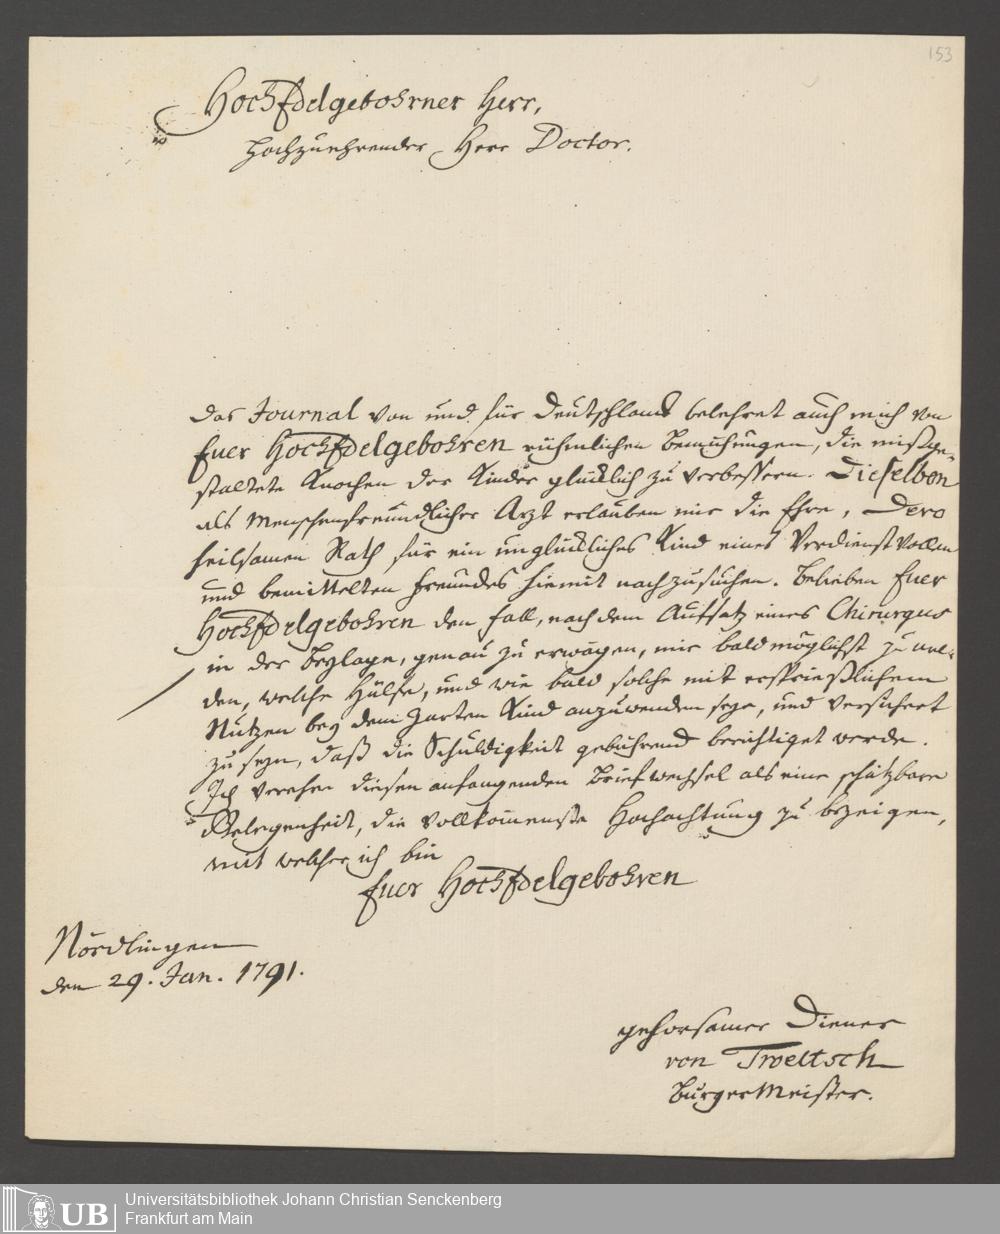 153
HochEdelgebohrner Herr,
Hochzuehrender Herr Doctor.
Das Journal von und für Deutschland belehret auch mich von
Euer HochEdelgebohren rühmlichen Bemühungen, die mißge-
staltete Knochen der Kinder glücklich zu verbessern. Dieselben
als Menschenfreundlicher Arzt erlauben mir die Ehre, Dero
heilsamen Rath für ein unglückliches Kind eines Verdienstvollen
und bemittelten Freundes hiemit nachzusuchen. Belieben Euer
HochEdelgebohren den Fall, nach dem Aufsatz eines Chirurgus
in der Beylage, genau zu erwägen, mir baldmöglichst zu mel-
den, welche Hülfe, und wie bald solche mit ersprießlichem
Nutzen bey dem zarten Kind anzuwenden seye, und versichert
zu seyn, daß die Schuldigkeit gebührend berichtiget werde.
Ich verehre diesen anfangenden Briefwechsel als eine schätzbare
Gelegenheit, die vollkommenste Hochachtung zu bezeigen,
mit welcher ich bin
Euer HochEdelgebohren
Nördlingen
den 29. Jan. 1791.
gehorsamer Diener
von Troeltsch
BurgerMeister.
UB
Universitätsbibliothek Johann Christian Senckenberg
Frankfurt am Main